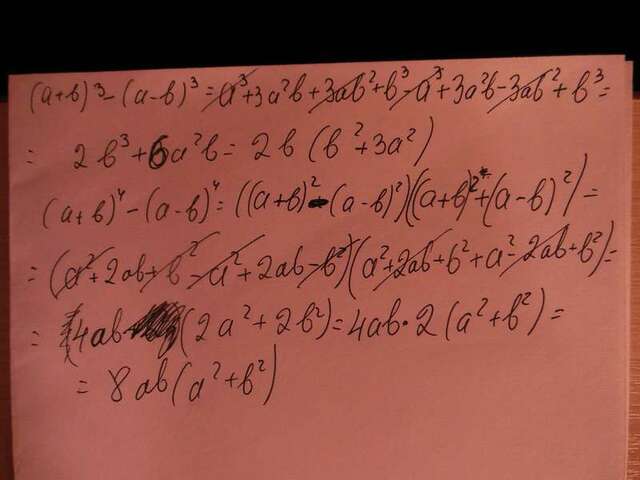 (a+b)³-(a-b)³=a³+3a²b+3ab²+b³-a³+3a²b-3ab²+b³=
= 2b³+6a²b=2b(b²+3a²)
(a+b)⁴-(a-b)⁴=((a+b)²-(a-b)²)((a+b)²+(a-b)²)=
=(a²+2ab+b²-a²+2ab-b²)(a²+2ab+b²+a²-2ab+b²)=
= 4ab(2a²+2b²)=4ab·2(a²+b²)=
= 8ab(a²+b²)